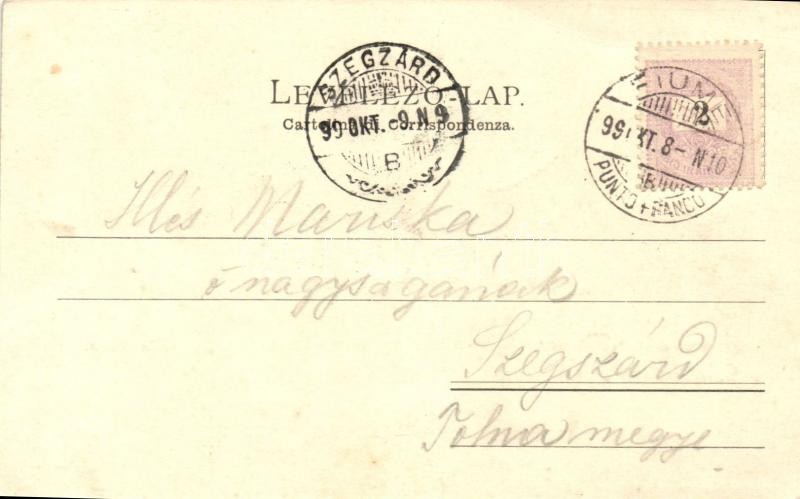 SZEGZÁRD
99 OKT. -9. N 9
B
LEVELEZŐ-LAP.
Cartolina di Corrispondenza.
FIUME
99 OKT. 8- N. 10
B
PUNTO FRANCO
2
Illés Mariska
ő nagyságának
Szegszárd
Tolna megye